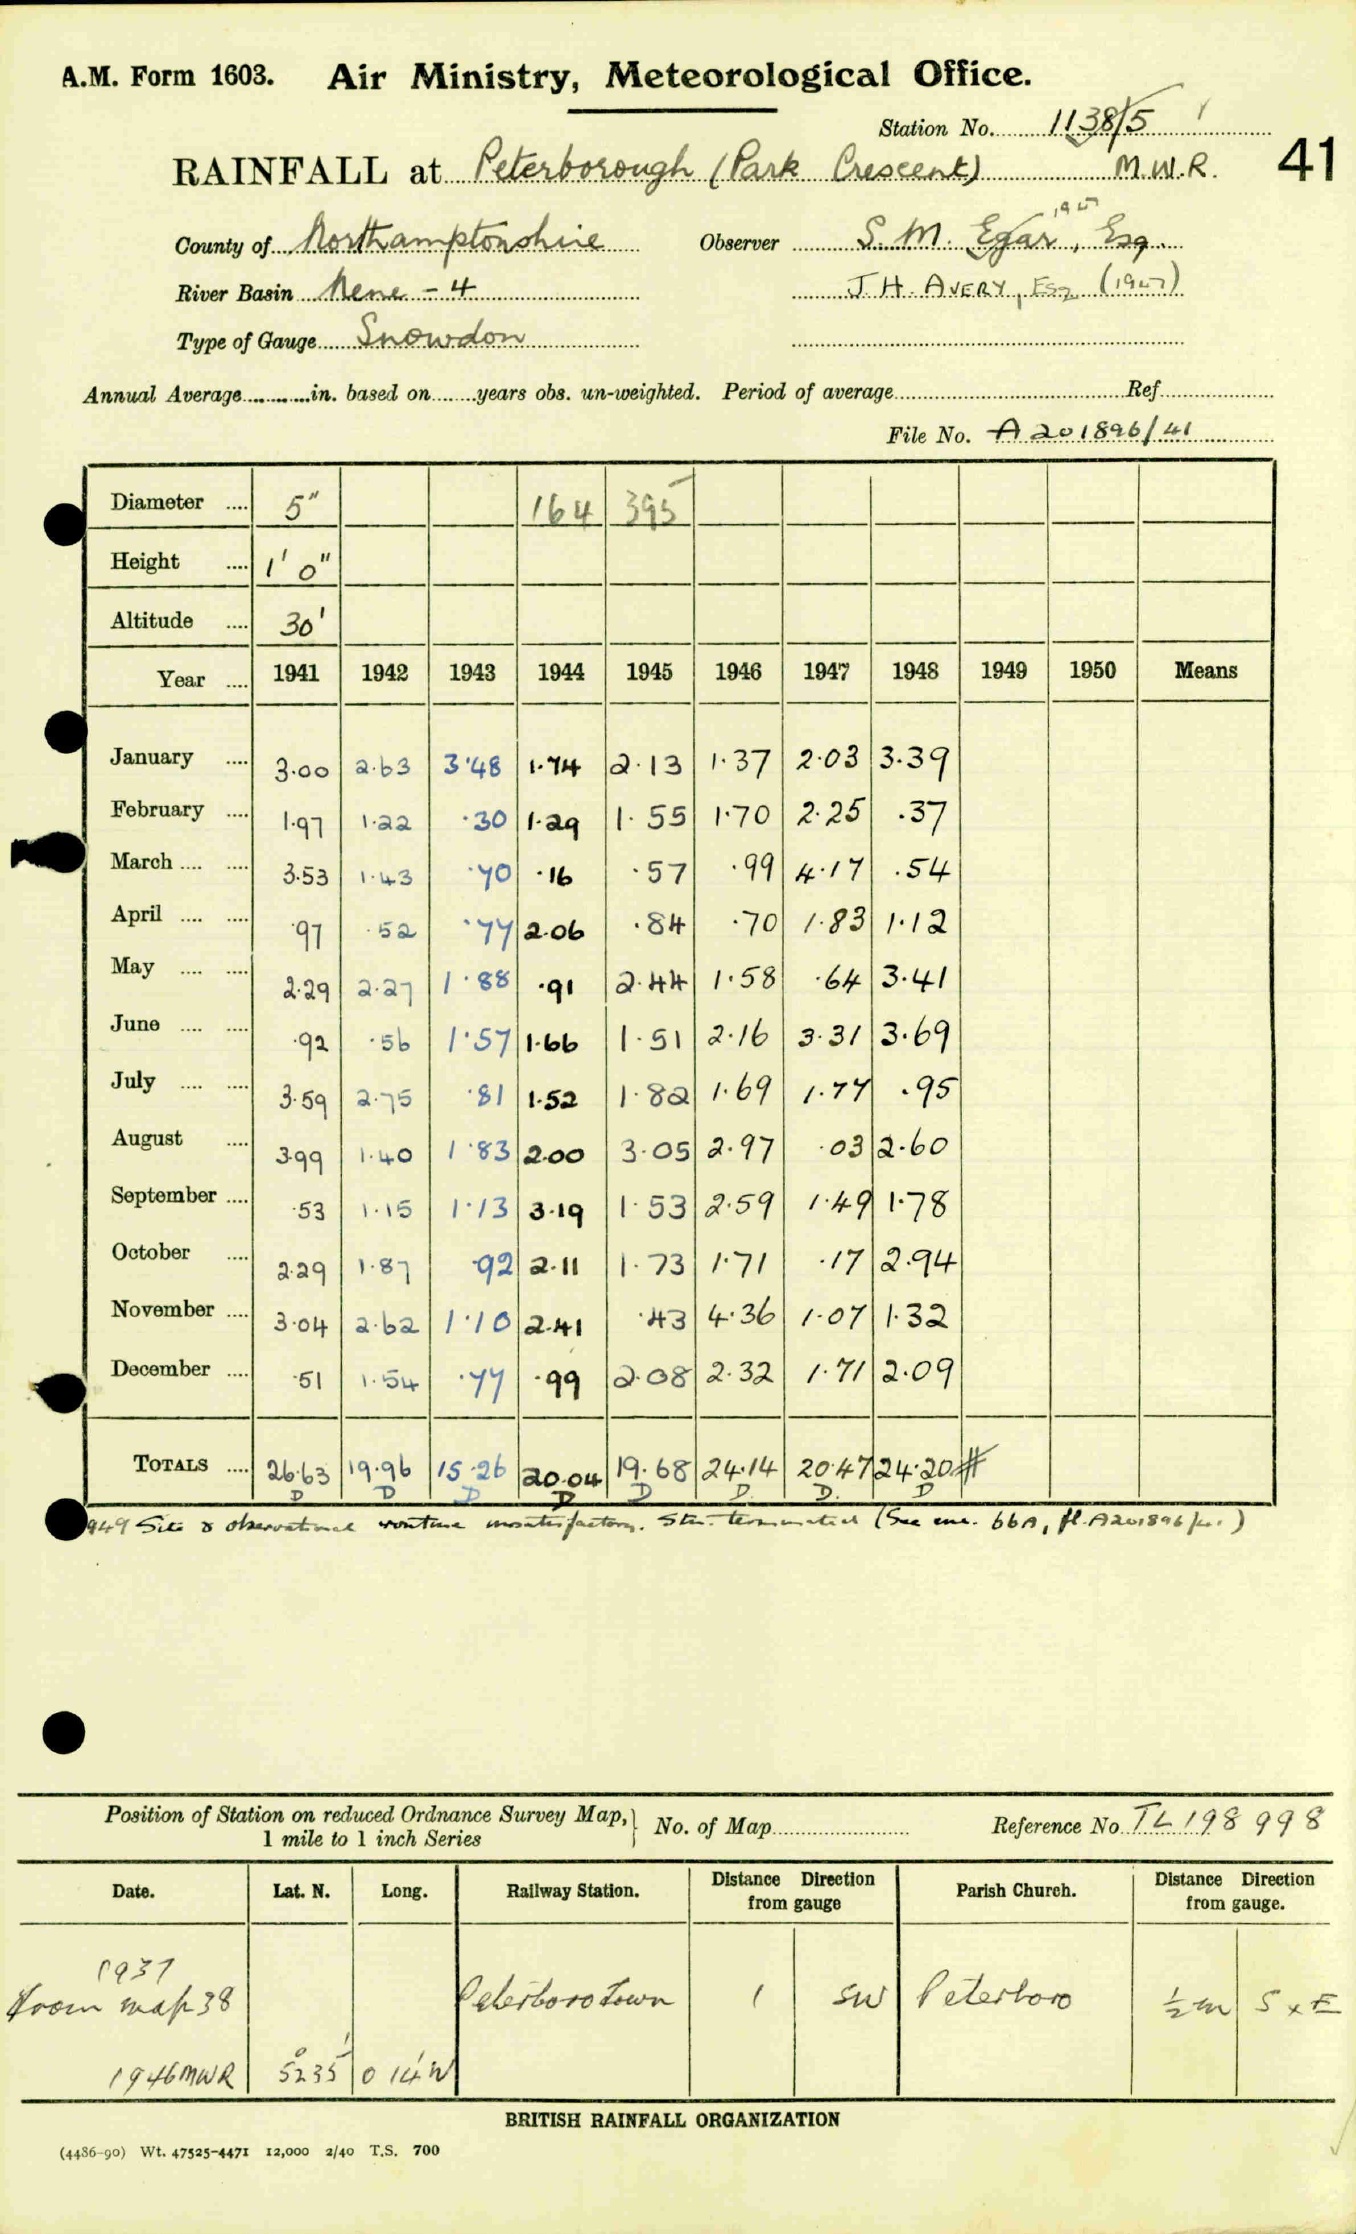 A.M. Form 1603. Air Ministry, Meteorological Office.
Station No. 1138/5
RAINFALL at Peterborough (Park Crescent) M.W.R. 41
County of Northamptonshire Observer S. M. Egar, Esq. 1947
River Basin Nene - 4 J. H. AVERY, ESQ (1947)
Type of Gauge Snowdon
Annual Average in. based on years obs. un-weighted. Period of average Ref
File No. A201896/41
Diameter 5" 164 395
Height 1' 0"
Altitude 30'
Year 1941 1942 1943 1944 1945 1946 1947 1948 1949 1950 Means
January 3.00 2.63 3.48 1.74 2.13 1.37 2.03 3.39
February 1.97 1.22 .30 1.29 1.55 1.70 2.25 .37
March 3.53 1.43 .70 .16 .57 .99 4.17 .54
April .97 .52 .77 2.06 .84 .70 1.83 1.12
May 2.29 2.27 1.88 .91 2.44 1.58 .64 3.41
June .92 .56 1.57 1.66 1.51 2.16 3.31 3.69
July 3.59 2.75 .81 1.52 1.82 1.69 1.77 .95
August 3.99 1.40 1.83 2.00 3.05 2.97 .03 2.60
September .53 1.15 1.13 3.19 1.53 2.59 1.49 1.78
October 2.29 1.87 .92 2.11 1.73 1.71 .17 2.94
November 3.04 2.62 1.10 2.41 .43 4.36 1.07 1.32
December .51 1.54 .77 .99 2.08 2.32 1.71 2.09
TOTALS 26.63 19.96 15.26 20.04 19.68 24.14 20.47 24.20 #
D D D D D D. D. D
1949 Site & observational routine unsatisfactory. Stn. terminated (See enc. 66A, fl. A201896/41)
Position of Station on reduced Ordnance Survey Map, 1 mile to 1 inch Series No. of Map Reference No. TL 198 998
Date. Lat. N. Long. Railway Station. Distance Direction from gauge Parish Church. Distance Direction from gauge.
1937
from map 38 Peterboro Town 1 SW Peterboro ½ m S x E
1946 MWR 52° 35' 0 14' W
BRITISH RAINFALL ORGANIZATION
(4486-90) Wt. 47525-4471 12,000 2/40 T.S. 700